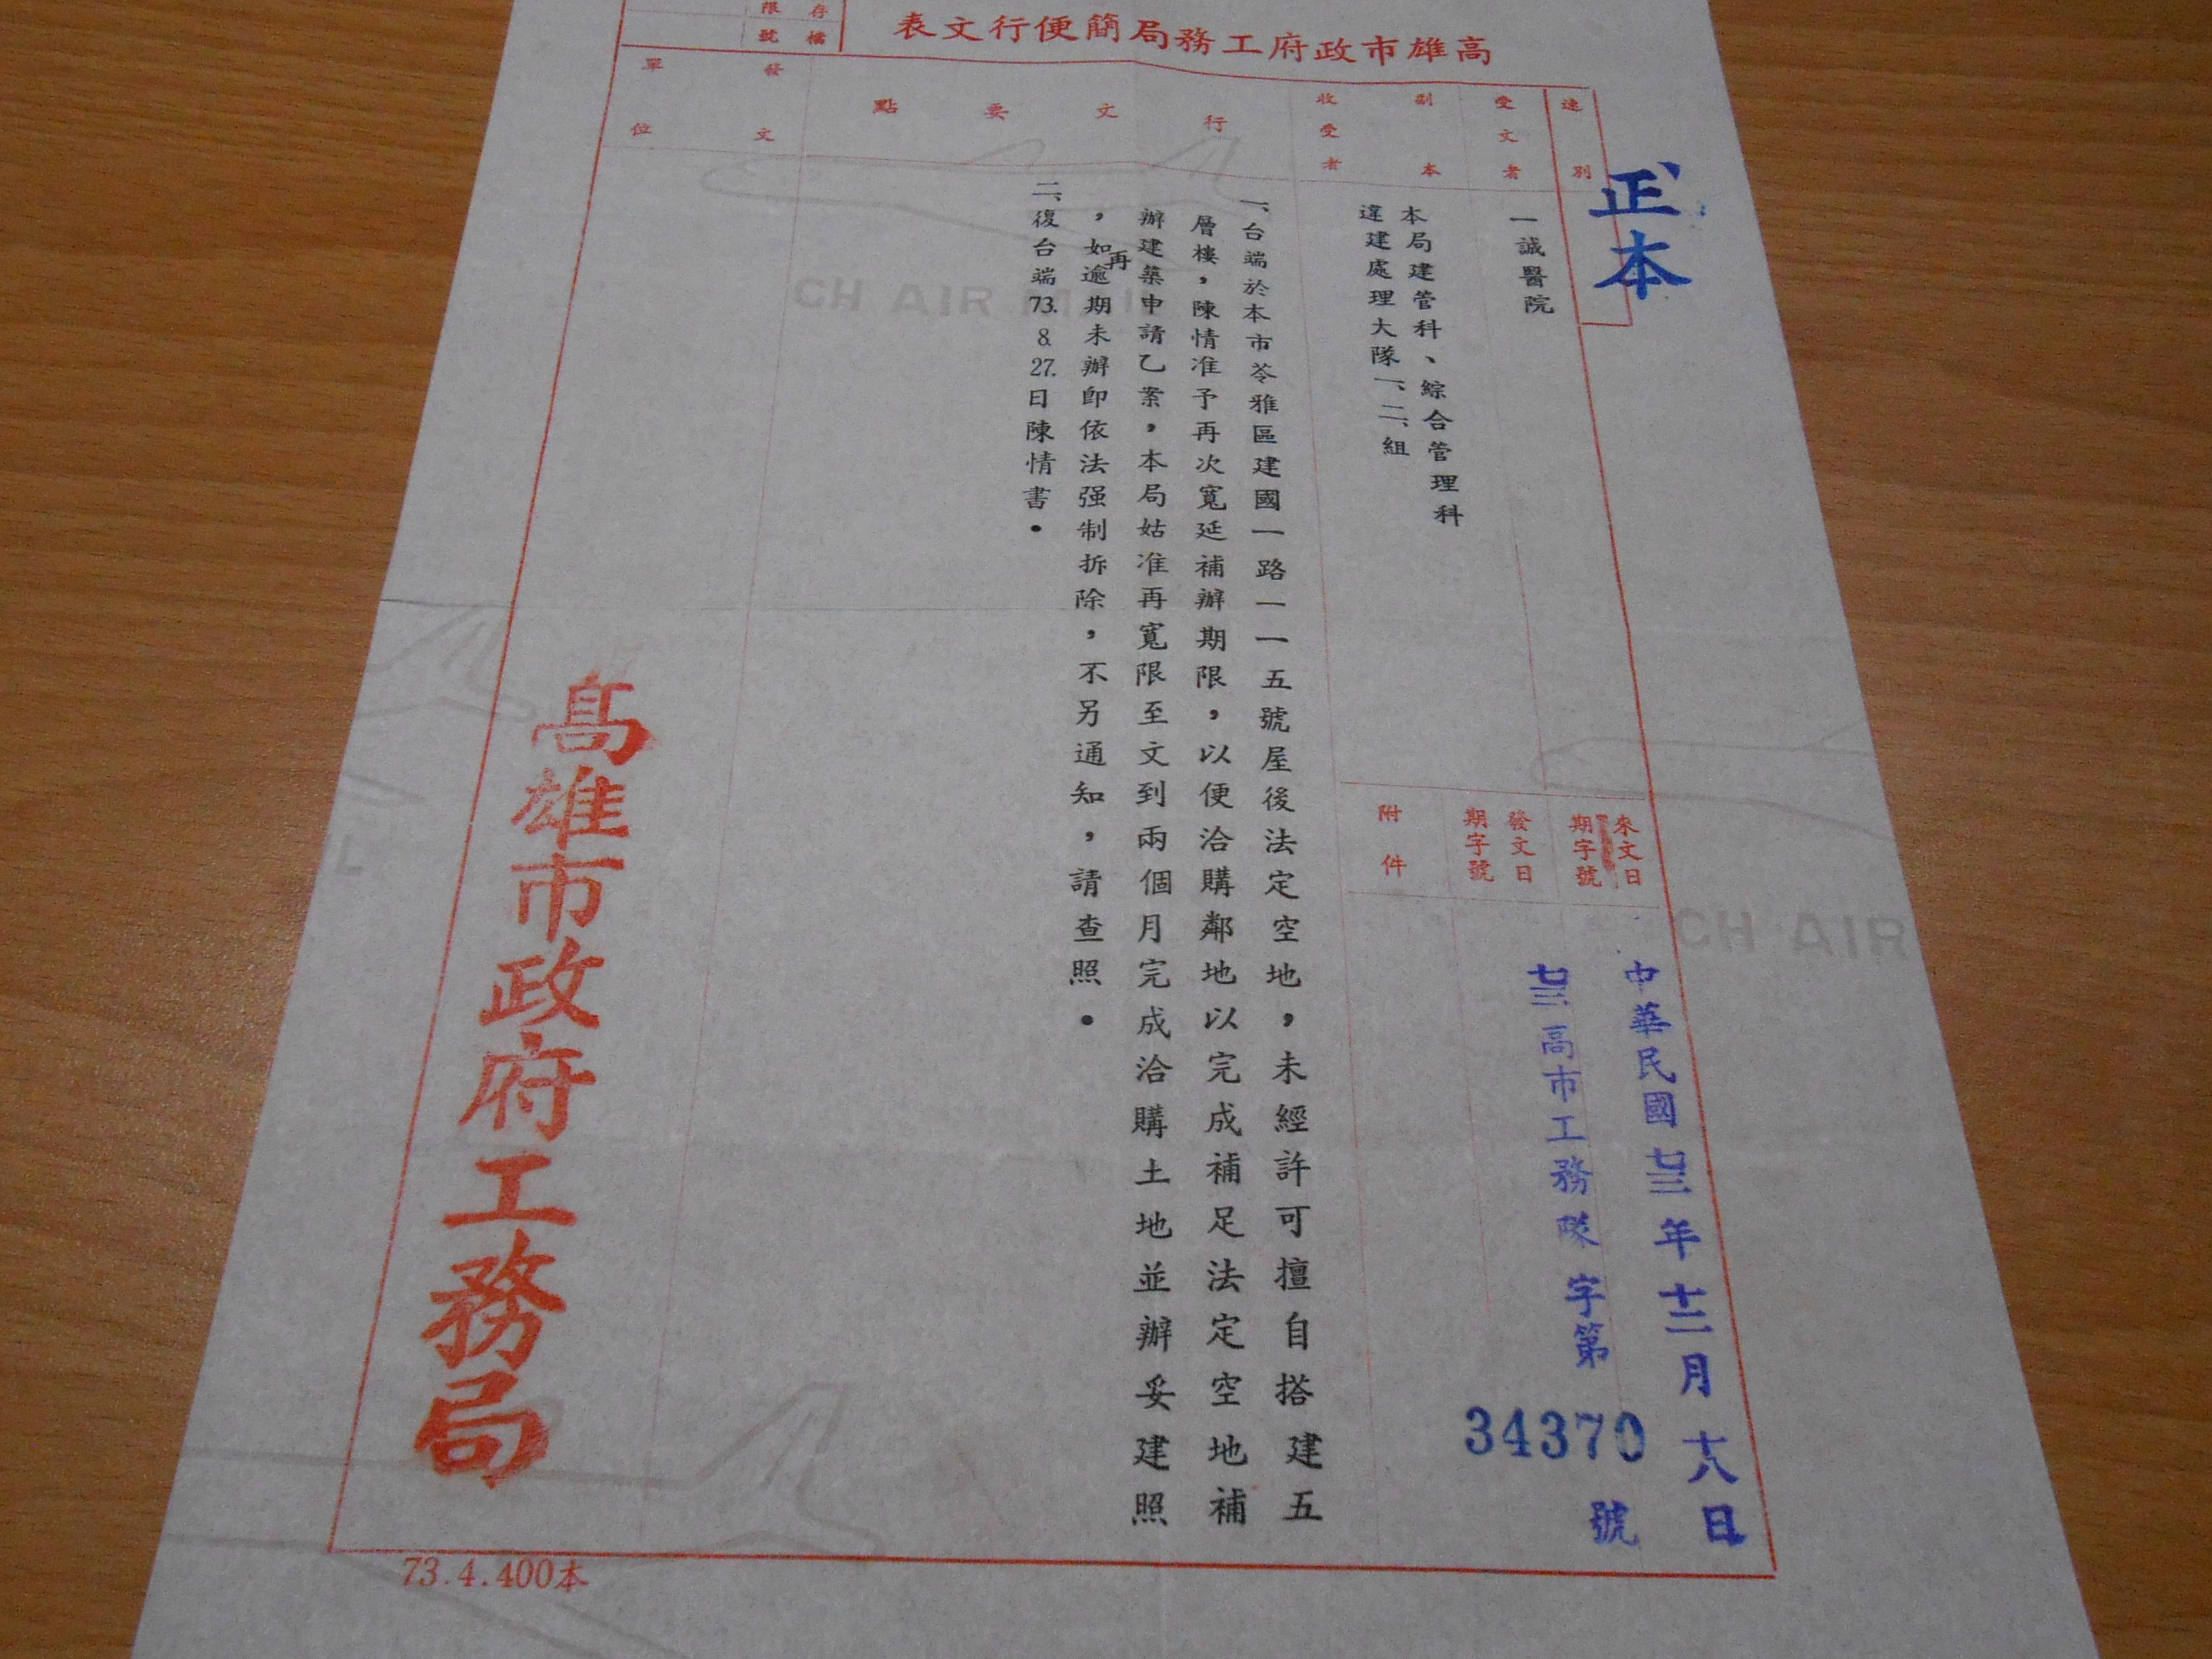 高雄市政府工務局簡便行文表
存檔
限號
正本
速別
受文者
一誠醫院
副本
收受者
本局建管科、綜合管理科
違建處理大隊一、二、組
來文日
期字號
發文日
期字號
附件
中華民國七三年十二月十八日
七三高市工務隊字第34370號
行文要點
一、台端於本市苓雅區建國一路一一五號屋後法定空地，未經許可擅自搭建五
層樓，陳情准予再次寬延補辦期限，以便洽購鄰地以完成補足法定空地補
辦建築申請乙案，本局姑准再寬限至文到兩個月完成洽購土地並辦妥建照
，如再逾期未辦即依法强制拆除，不另通知，請查照。
二、復台端73.8.27.日陳情書。
發文
單位
高雄市政府工務局
73.4.400本
CH AIR MAIL
CH AIR
IL